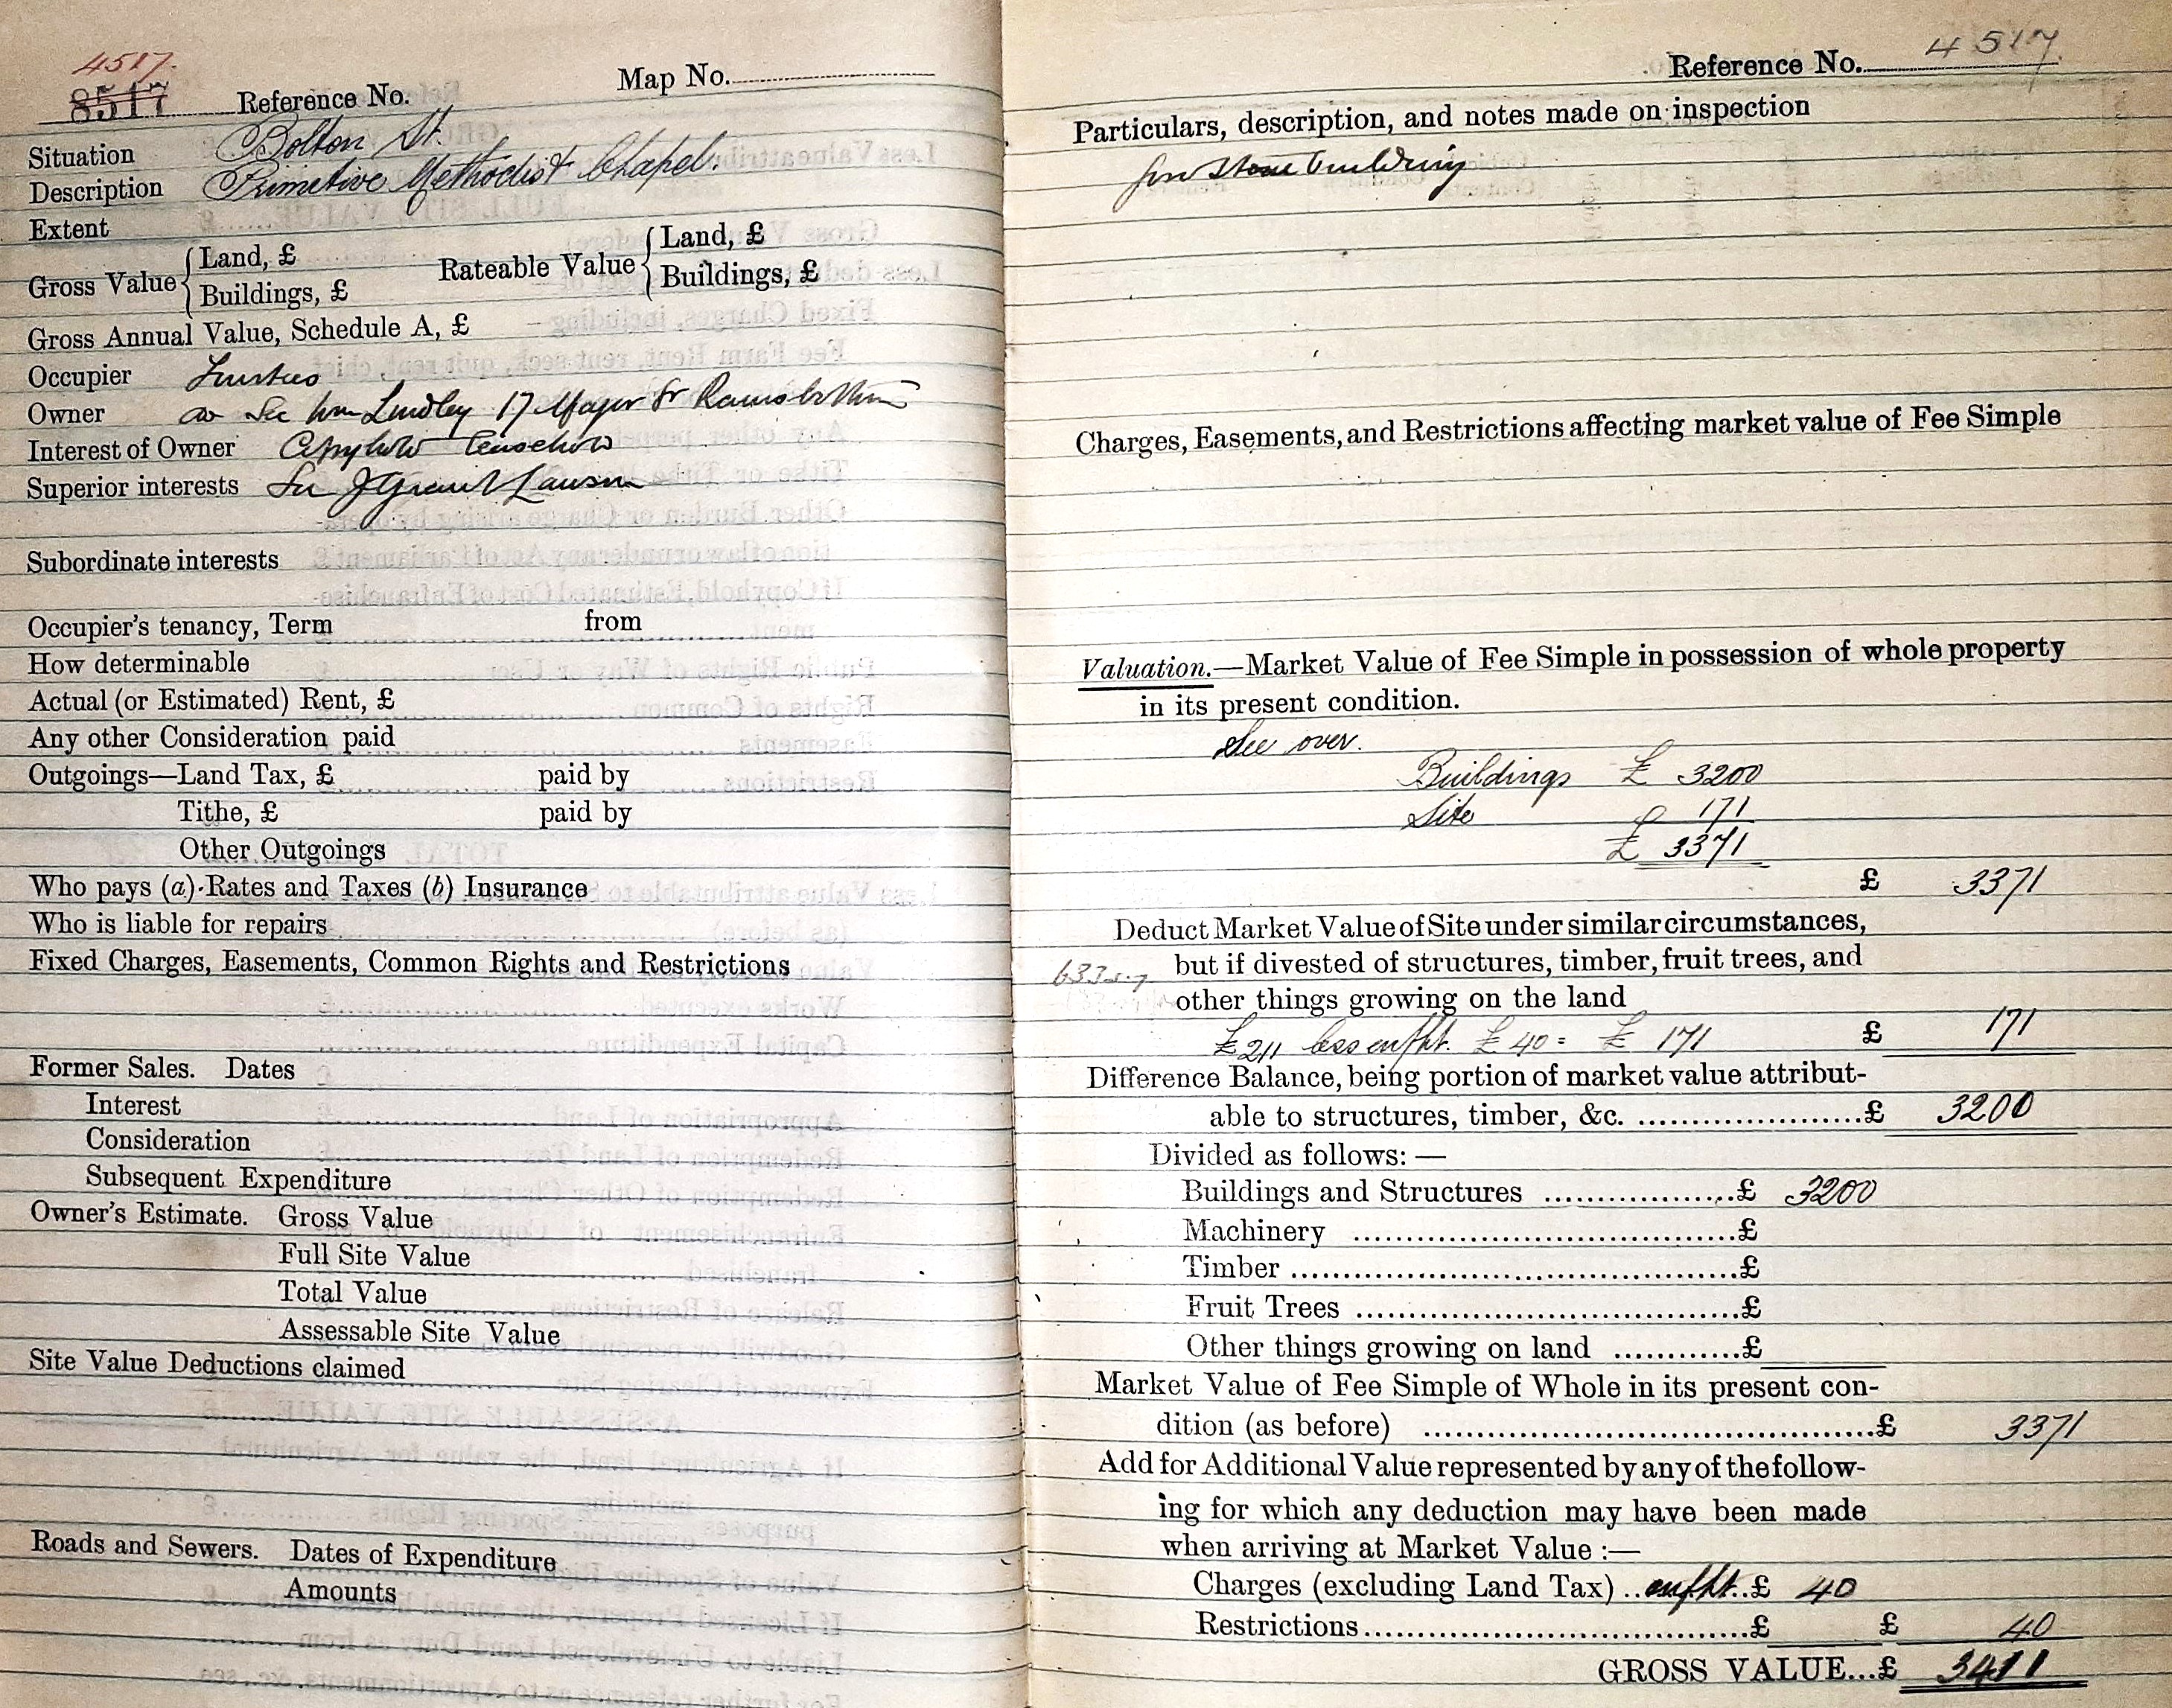 4517.
8517 Reference No. Map No.
Situation Bolton St.
Description Primetive Methodist Chapel.
Extent
Gross Value { Land, £ Rateable Value { Land, £
Buildings, £ Buildings, £
Gross Annual Value, Schedule A, £
Occupier Trustees
Owner Sec Wm Lindley 17 Major St Ramsbottom
Interest of Owner Copyhold
Superior interests Sir J Grant Lawson
Subordinate interests
Occupier's tenancy, Term from
How determinable
Actual (or Estimated) Rent, £
Any other Consideration paid
Outgoings—Land Tax, £ paid by
Tithe, £ paid by
Other Outgoings
Who pays (a) Rates and Taxes (b) Insurance
Who is liable for repairs
Fixed Charges, Easements, Common Rights and Restrictions
Former Sales. Dates
Interest
Consideration
Subsequent Expenditure
Owner's Estimate. Gross Value
Full Site Value
Total Value
Assessable Site Value
Site Value Deductions claimed
Roads and Sewers. Dates of Expenditure
Amounts
Reference No. 4517
Particulars, description, and notes made on inspection
stone building
Charges, Easements, and Restrictions affecting market value of Fee Simple
Valuation.—Market Value of Fee Simple in possession of whole property
in its present condition.
See over.
Buildings £ 3200
Site £ 171
£ 3371
£ 3371
Deduct Market Value of Site under similar circumstances,
but if divested of structures, timber, fruit trees, and
633 s.y
other things growing on the land
£211 less enfht. £40 = £171 £ 171
Difference Balance, being portion of market value attribut-
able to structures, timber, &c. £ 3200
Divided as follows: —
Buildings and Structures £ 3200
Machinery £
Timber £
Fruit Trees £
Other things growing on land £
Market Value of Fee Simple of Whole in its present con-
dition (as before) £ 3371
Add for Additional Value represented by any of the follow-
ing for which any deduction may have been made
when arriving at Market Value :—
Charges (excluding Land Tax) enfht. £ 40
Restrictions £ £ 40
GROSS VALUE...£ 3411